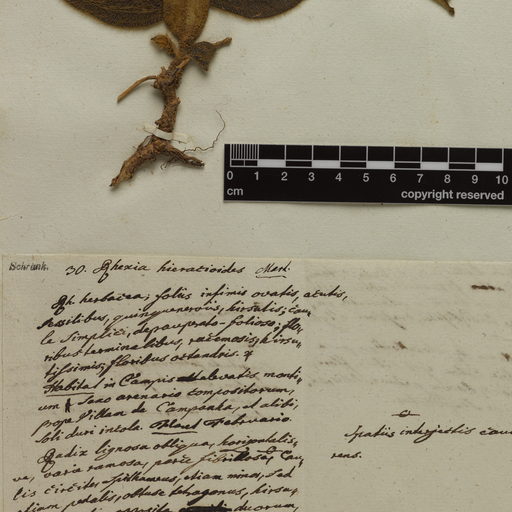 0 1 2 3 4 5 6 7 8 9 10
cm
copyright reserved
Schrank.
30. Rhexia hieracioides Mart.
Rh. herbacea; foliis infimis ovatis, acutis,
sessilibus, quinquenerviis, hirsutis; cau-
le simplici, depauperato-folioso; flo-
ribus terminalibus, racemosis, hirsu-
tissimis; floribus octandris.
Habitat in Campis elevatis monti-
um Saxo arenario compositorum,
prope Villam de Campanha, et alibi,
soli duri incola. Floret Februario.
Radix lignosa obliqua, horizontalis,
varia ramosa, parce fibrillosa, Cau-
lis circiter spithameus, etiam minor, sed
etiam pedalis, obtuse tetragonus, hirsu-
opposita duorum,
Spatiis interjectis cau
rens.